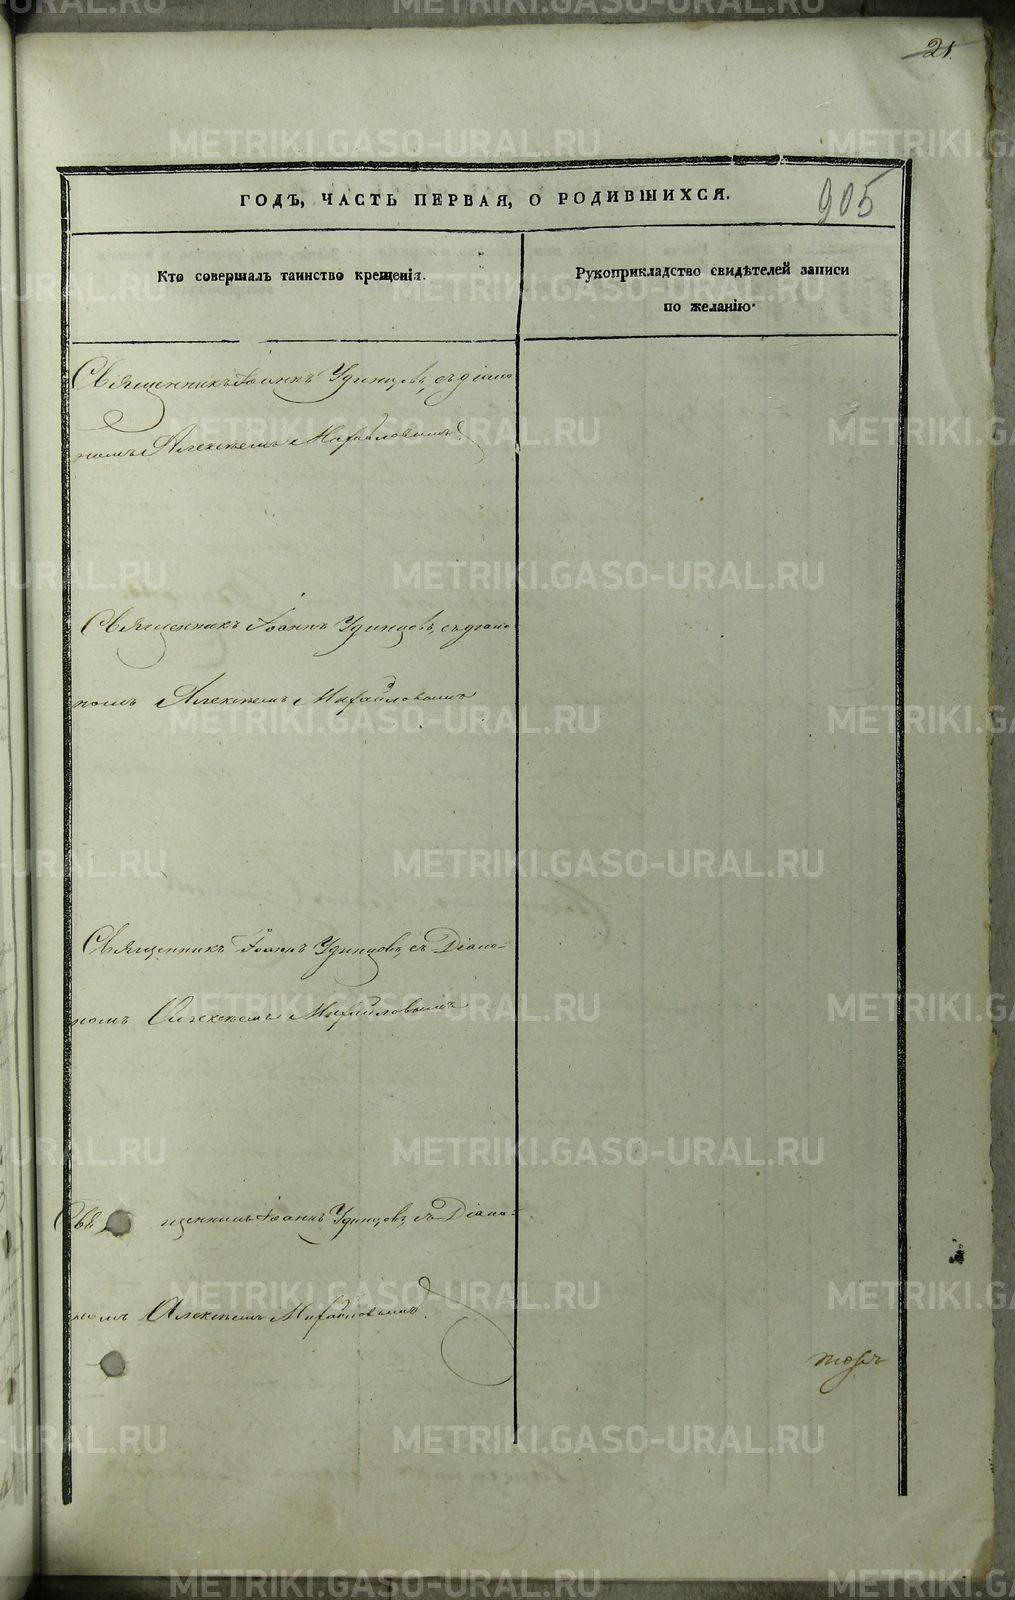 21.
ГОДЪ, ЧАСТЬ ПЕРВАЯ, О РОДИВШИХСЯ.
905
Кто совершалъ таинство крещенія.
Рукоприкладство свидѣтелей записи
по желанію.
Священникъ Іоаннъ Удинцовъ, съ діако
номъ Алексѣемъ Михайловымъ.
Священникъ Іоаннъ Удинцовъ, съ діако
номъ Алексѣемъ Михайловымъ
Священникъ Іоаннъ Удинцовъ, съ Діако-
номъ Алексѣемъ Михайловымъ
Свя щенникъ Іоаннъ Удинцовъ съ Діако-
номъ Алексѣемъ Михайловымъ.
METRIKI.GASO-URAL.RU